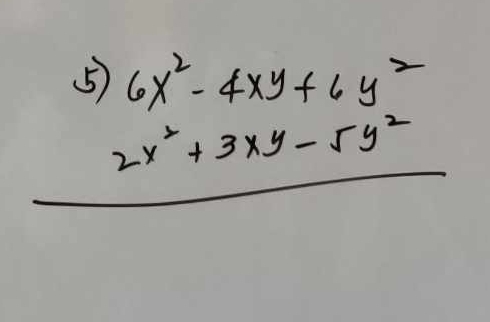 5) 6x² - 4xy + 6y²
2x² + 3xy - 5y²